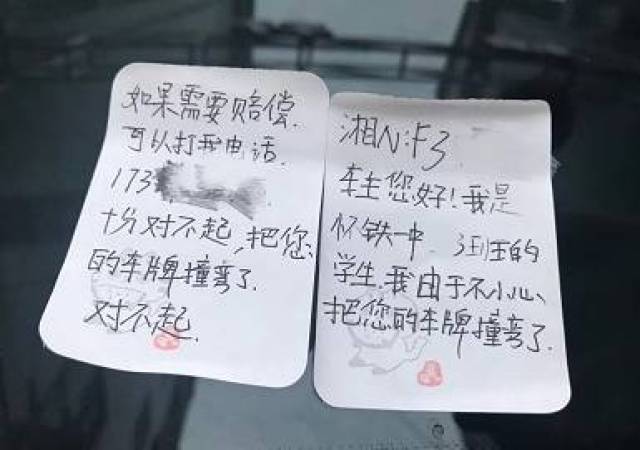 湘N:F3
车主您好!我是
怀铁一中 3班的
学生.我由于不小心、
把您的车牌撞弯了.
如果需要赔偿.
可以打我电话.
173
十分对不起,把您、
的车牌撞弯了.
对不起.